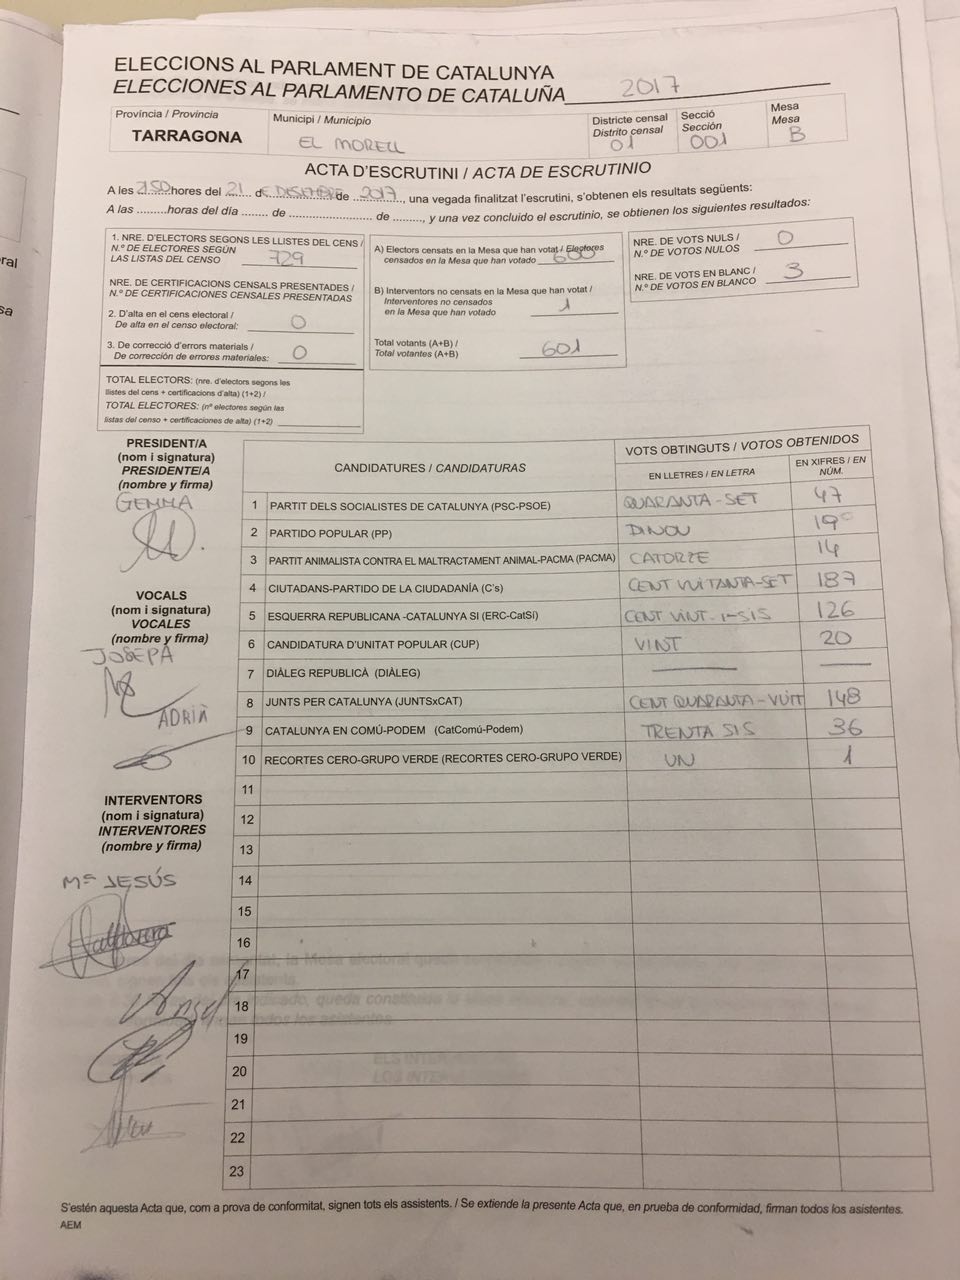 ELECCIONS AL PARLAMENT DE CATALUNYA
ELECCIONES AL PARLAMENTO DE CATALUÑA 2017
Província / Provincia
TARRAGONA
Municipi / Municipio
EL MORELL
Districte censal
Distrito censal
01
Secció
Sección
001
Mesa
Mesa
B
ACTA D'ESCRUTINI / ACTA DE ESCRUTINIO
A les hores del 21 de DESEMBRE de 2017, una vegada finalitzat l'escrutini, s'obtenen els resultats següents:
A las .........horas del día ....... de ...................... de ........, y una vez concluido el escrutinio, se obtienen los siguientes resultados:
1. NRE. D'ELECTORS SEGONS LES LLISTES DEL CENS /
N.º DE ELECTORES SEGÚN
LAS LISTAS DEL CENSO 729
NRE. DE CERTIFICACIONS CENSALS PRESENTADES /
N.º DE CERTIFICACIONES CENSALES PRESENTADAS
2. D'alta en el cens electoral /
De alta en el censo electoral: 0
3. De correcció d'errors materials /
De corrección de errores materiales: 0
TOTAL ELECTORS: (nre. d'electors segons les
llistes del cens + certificacions d'alta) (1+2) /
TOTAL ELECTORES: (nº electores según las
listas del censo + certificaciones de alta) (1+2)
A) Electors censats en la Mesa que han votat / Electores
censados en la Mesa que han votado 600
B) Interventors no censats en la Mesa que han votat /
Interventores no censados
en la Mesa que han votado 1
Total votants (A+B) /
Total votantes (A+B) 601
NRE. DE VOTS NULS /
N.º DE VOTOS NULOS 0
NRE. DE VOTS EN BLANC /
N.º DE VOTOS EN BLANCO 3
PRESIDENT/A
(nom i signatura)
PRESIDENTE/A
(nombre y firma)
GEMMA
VOCALS
(nom i signatura)
VOCALES
(nombre y firma)
JOSEPA
ADRIÀ
INTERVENTORS
(nom i signatura)
INTERVENTORES
(nombre y firma)
Mª JESÚS
Angel
CANDIDATURES / CANDIDATURAS
VOTS OBTINGUTS / VOTOS OBTENIDOS
EN LLETRES / EN LETRA
EN XIFRES / EN
NÚM.
1 PARTIT DELS SOCIALISTES DE CATALUNYA (PSC-PSOE) QUARANTA-SET 47
2 PARTIDO POPULAR (PP) DINOU 19
3 PARTIT ANIMALISTA CONTRA EL MALTRACTAMENT ANIMAL-PACMA (PACMA) CATORZE 14
4 CIUTADANS-PARTIDO DE LA CIUDADANÍA (C's) CENT VUITANTA-SET 187
5 ESQUERRA REPUBLICANA -CATALUNYA SI (ERC-CatSí) CENT VINT-I-SIS 126
6 CANDIDATURA D'UNITAT POPULAR (CUP) VINT 20
7 DIÀLEG REPUBLICÀ (DIÀLEG)
8 JUNTS PER CATALUNYA (JUNTSxCAT) CENT QUARANTA-VUIT 148
9 CATALUNYA EN COMÚ-PODEM (CatComú-Podem) TRENTA SIS 36
10 RECORTES CERO-GRUPO VERDE (RECORTES CERO-GRUPO VERDE) UN 1
11
12
13
14
15
16
17
18
19
20
21
22
23
S'estén aquesta Acta que, com a prova de conformitat, signen tots els assistents. / Se extiende la presente Acta que, en prueba de conformidad, firman todos los asistentes.
AEM